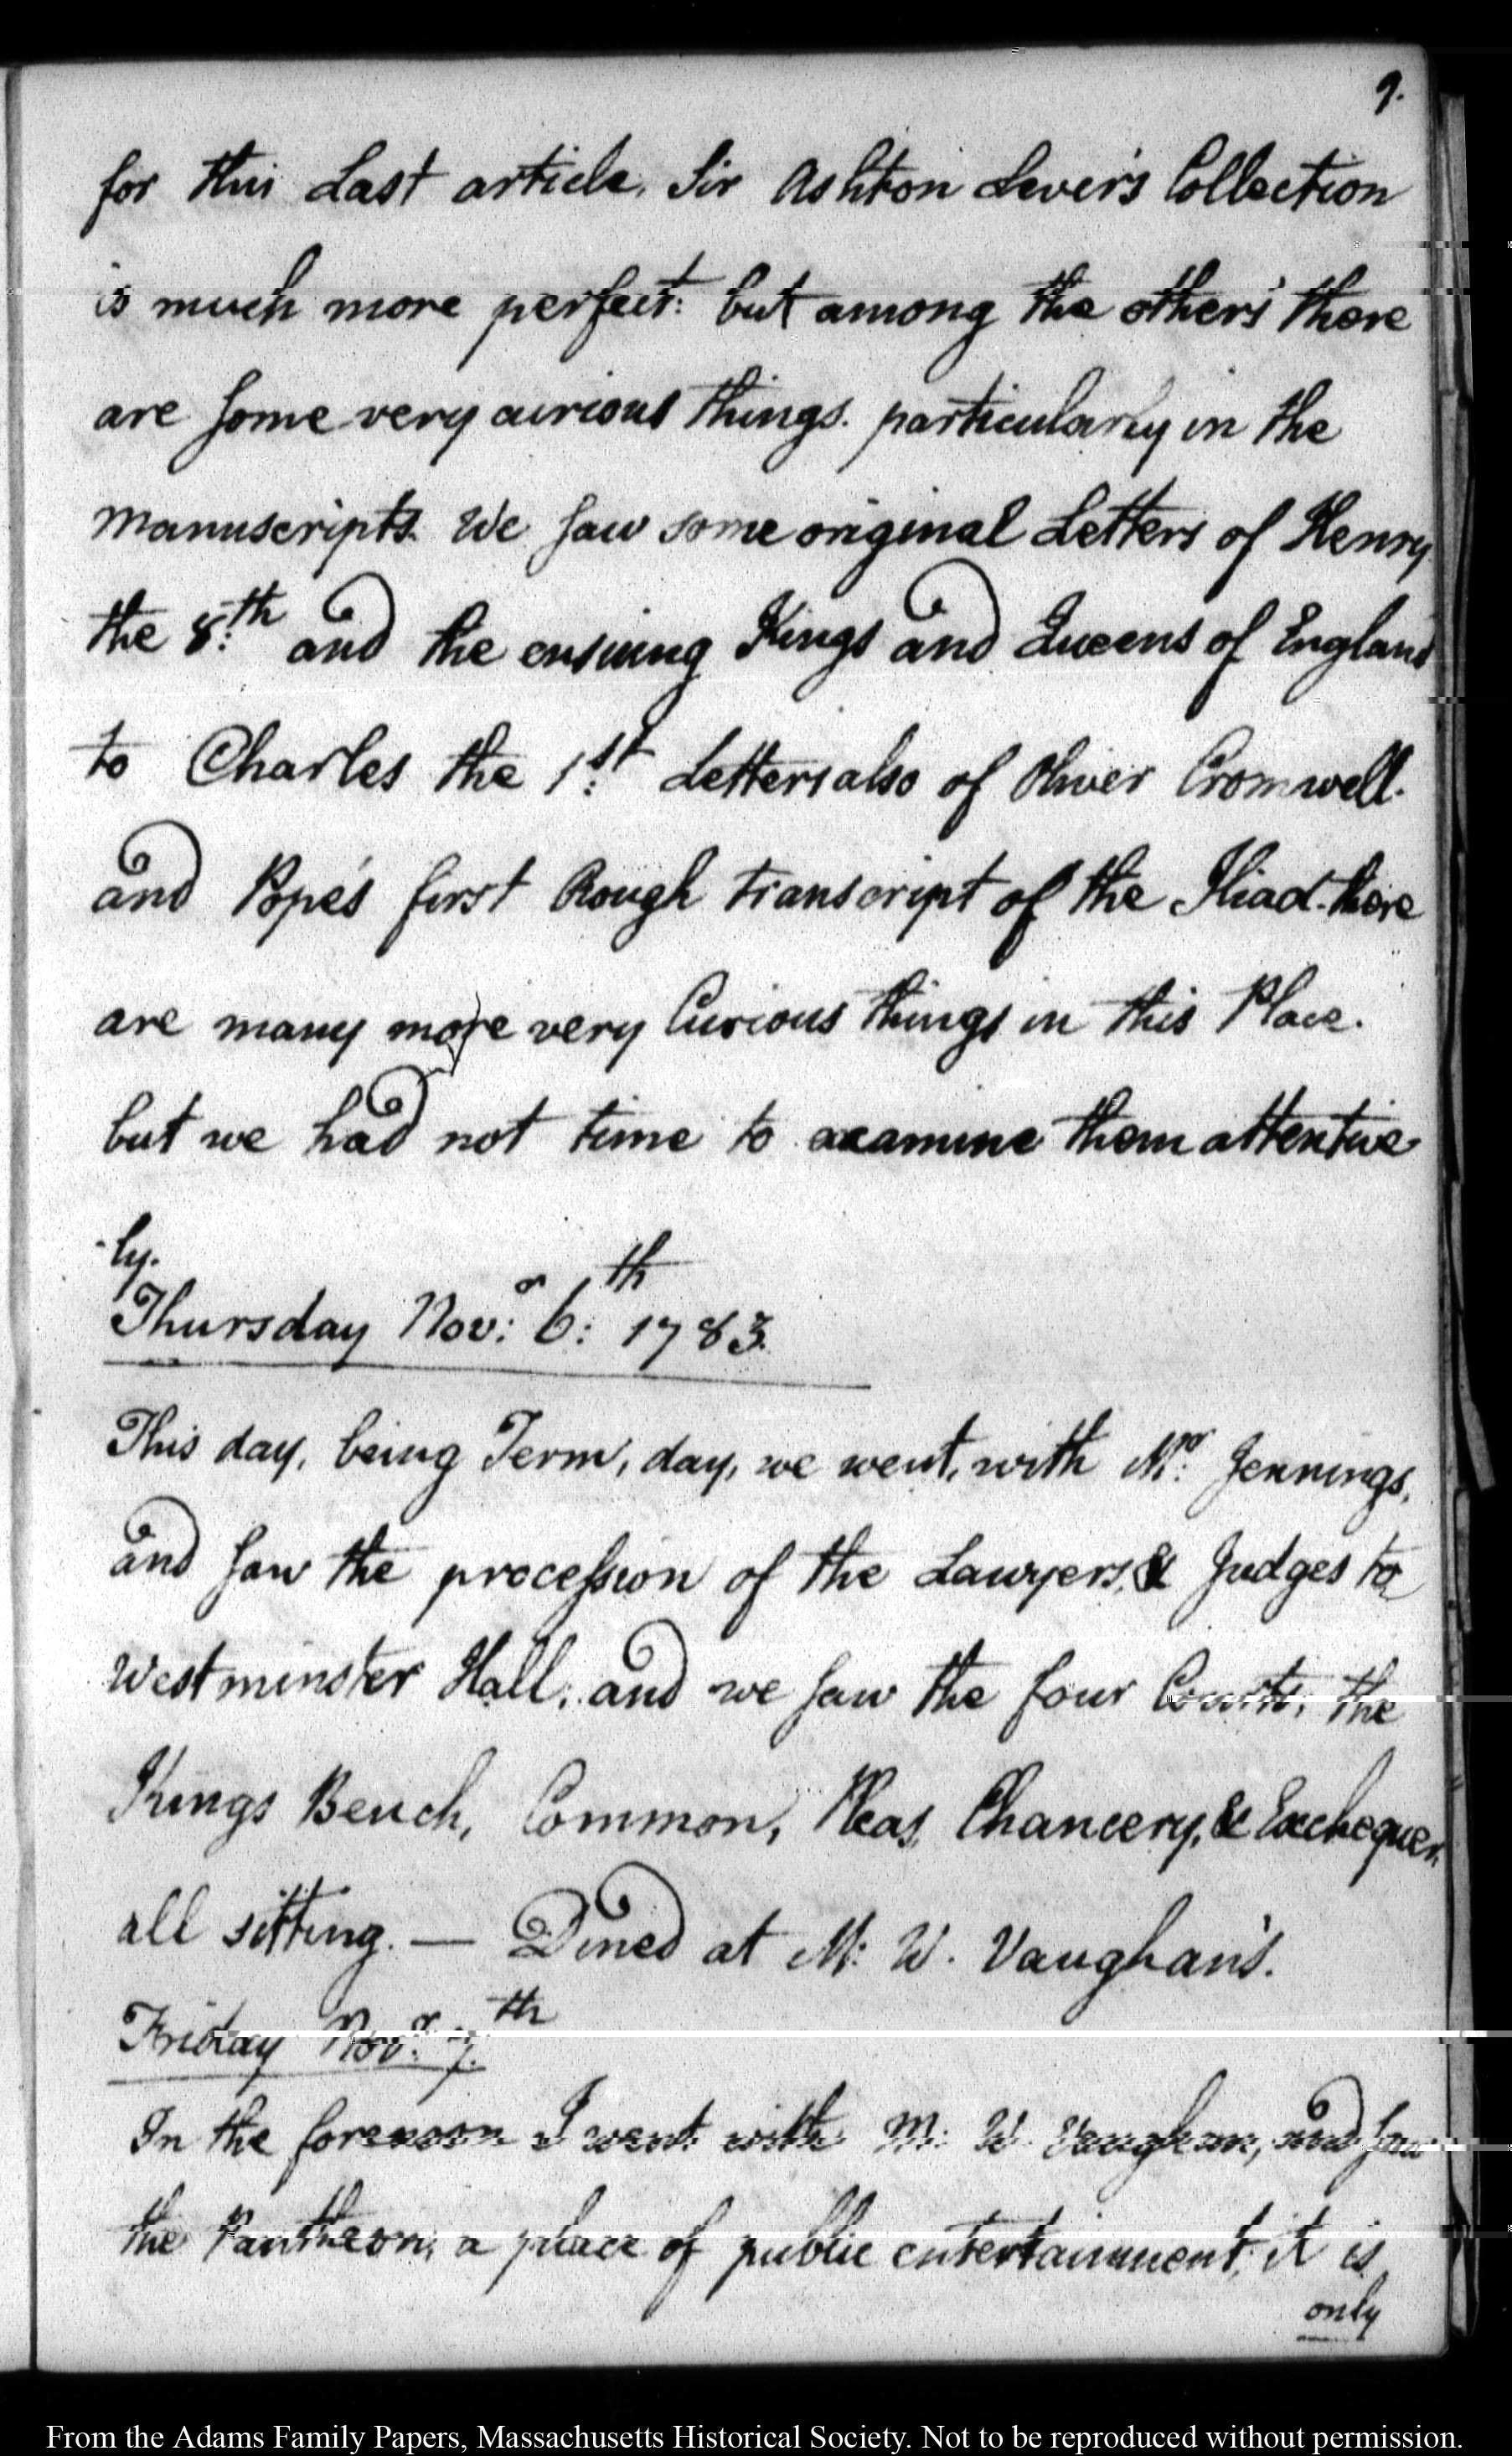 9.
for this Last article, Sir Ashton Lever's Collection
is much more perfect: but among the others there
are some very curious things. particularly in the
manuscripts. We saw some original Letters of Henry
the 8:th and the ensuing Kings and Queens of England
to Charles the 1:st Letters also of Oliver Cromwell.
and Pope's first Rough transcript of the Iliad. there
are many more very Curious things in this Place.
but we had not time to examine them attentive
-ly.
Thursday Nov:r 6:th 1783.
This day, being Term, day, we went, with Mr: Jennings,
and saw the procession of the Lawyers, & Judges to
Westminster Hall, and we saw the four Courts, the
Kings Bench, Common, Pleas, Chancery, & Exchequer,
all sitting. — Dined at M: W. Vaughan's.
Friday Nov:r 7.th
In the forenoon I went with M: W. Vaughan, and saw
the Pantheon, a place of public entertainment, it is
only
From the Adams Family Papers, Massachusetts Historical Society. Not to be reproduced without permission.